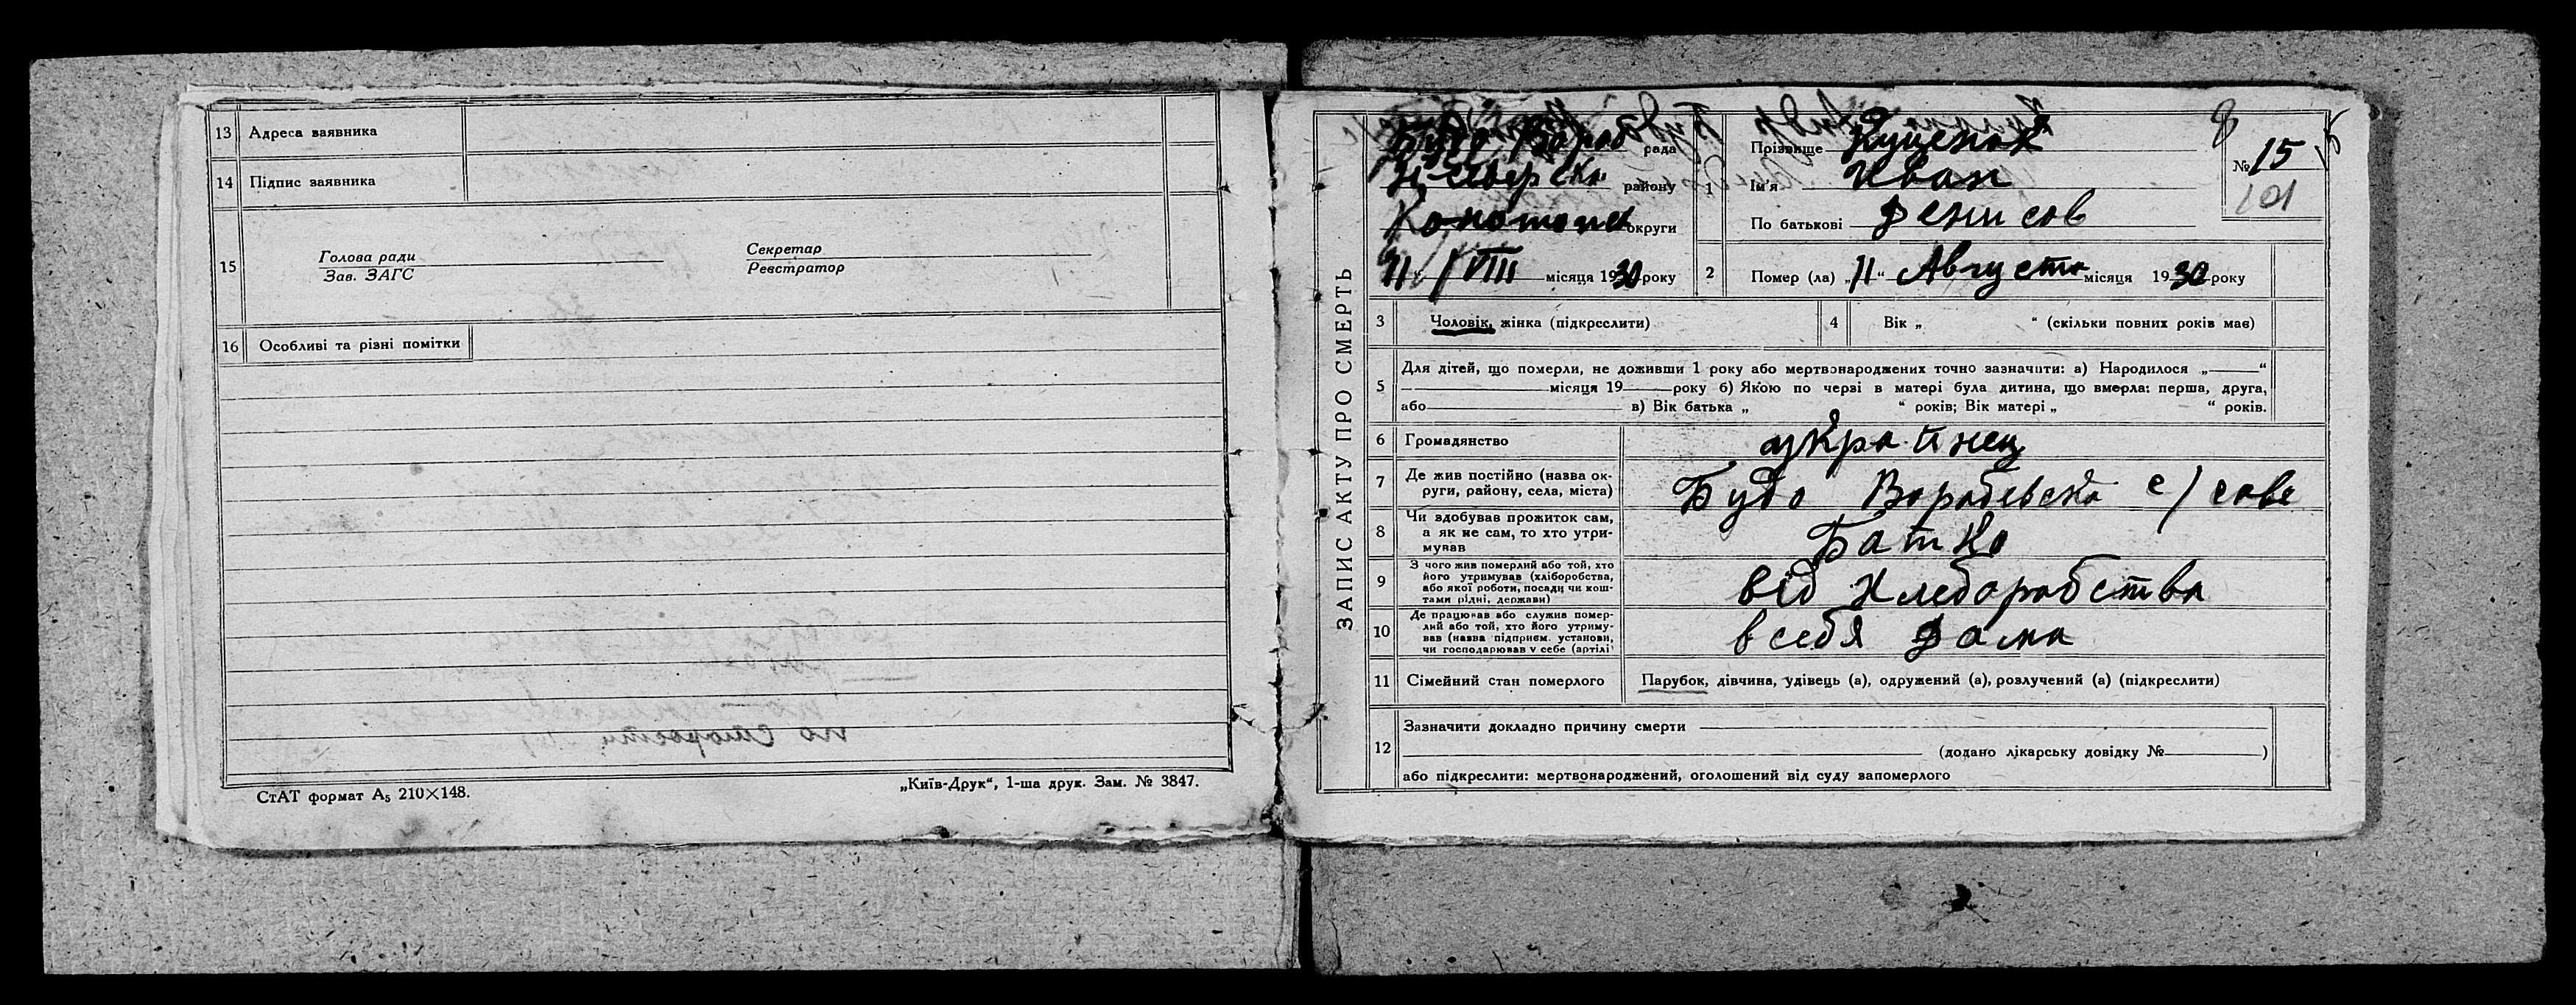 13 Адреса заявника
14 Підпис заявника
15 Голова ради
Зав. ЗАГС
Секретар
Реєстратор
16 Особливі та різні помітки
СтАТ формат А₅ 210×148.
„Київ-Друк“, 1-ша друк. Зам. № 3847.
ЗАПИС АКТУ ПРО СМЕРТЬ
Будо Вороб рада
Н-Сіверски району
Конотопск округи
„11“ VIII місяця 1930 року
1 Прізвище Куценок
Ім'я Иван
По батькові Денисов
№ 15
101
2 Помер (ла) „11“ Августа місяця 1930 року
3 Чоловік, жінка (підкреслити)
4 Вік „ “ (скільки повних років має)
5 Для дітей, що померли, не доживши 1 року або мертвонароджених точно зазначити: а) Народилося „ “
місяця 19 року б) Якою по черзі в матері була дитина, що вмерла: перша, друга,
або в) Вік батька „ “ років; Вік матері „ “ років.
6 Громадянство украінец
7 Де жив постійно (назва округи, району, села, міста) Будо Воробевска с/сове
8 Чи здобував прожиток сам,
а як не сам, то хто утримував Батко
9 З чого жив померлий або той, хто
його утримував (хліборобства,
або якої роботи, посади чи коштами рідні, держави) від хлеборобства
10 Де працював або служив померлий або той, хто його утримував (назва підприєм. установи,
чи господарював у себе (артілі) в себя дома
11 Сімейний стан померлого Парубок, дівчина, удівець (а), одружений (а), розлучений (а) (підкреслити)
12 Зазначити докладно причину смерти
(додано лікарську довідку № )
або підкреслити: мертвонароджений, оголошений від суду запомерлого